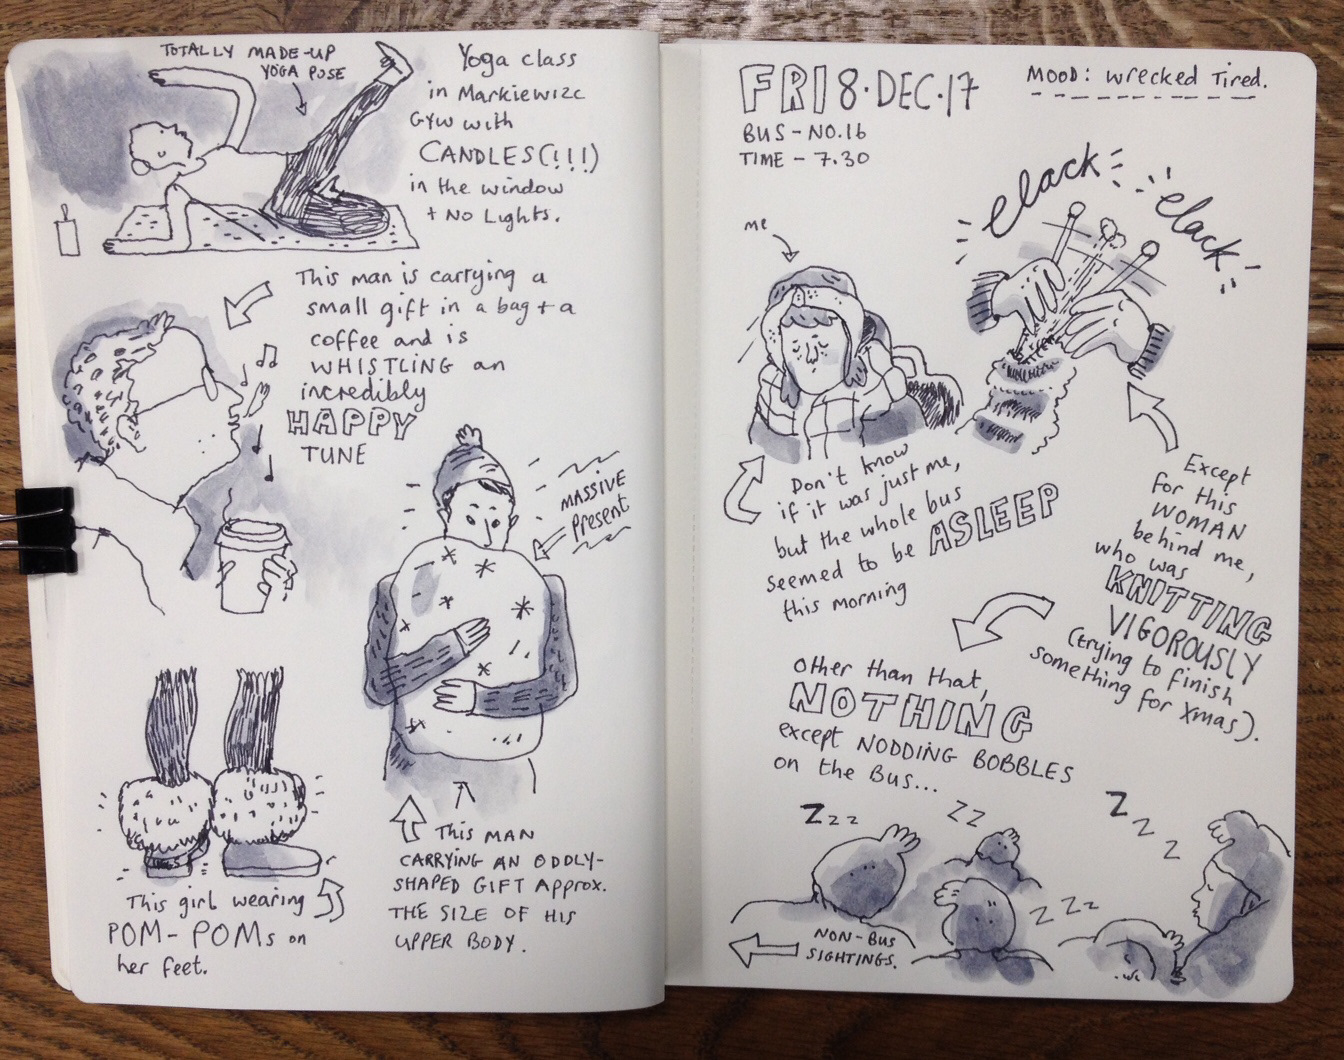 TOTALLY MADE-UP
YOGA POSE
Yoga class
in Markiewizc
Gym with
CANDLES(!!!)
in the window
+ No Lights.
This man is carrying a
small gift in a bag + a
coffee and is
WHISTLING an
incredibly
HAPPY
TUNE
MASSIVE
Present
This girl wearing
POM-POMs on
her feet.
This MAN
CARRYING AN ODDLY-
SHAPED GIFT Approx.
THE SIZE OF HIS
UPPER BODY.
FRI 8.DEC.17
BUS - NO.16
TIME - 7.30
MOOD: Wrecked Tired.
me
clack
clack
Don't know
if it was just me,
but the whole bus
seemed to be ASLEEP
this morning
Except
for this
WOMAN
behind me,
who was
KNITTING
VIGOROUSLY
(trying to finish
something for Xmas).
Other than that,
NOTHING
except NODDING BOBBLES
on the Bus...
Zzzz
ZZ
Z
Z
Z
Zzzz
NON-BUS
SIGHTINGS.